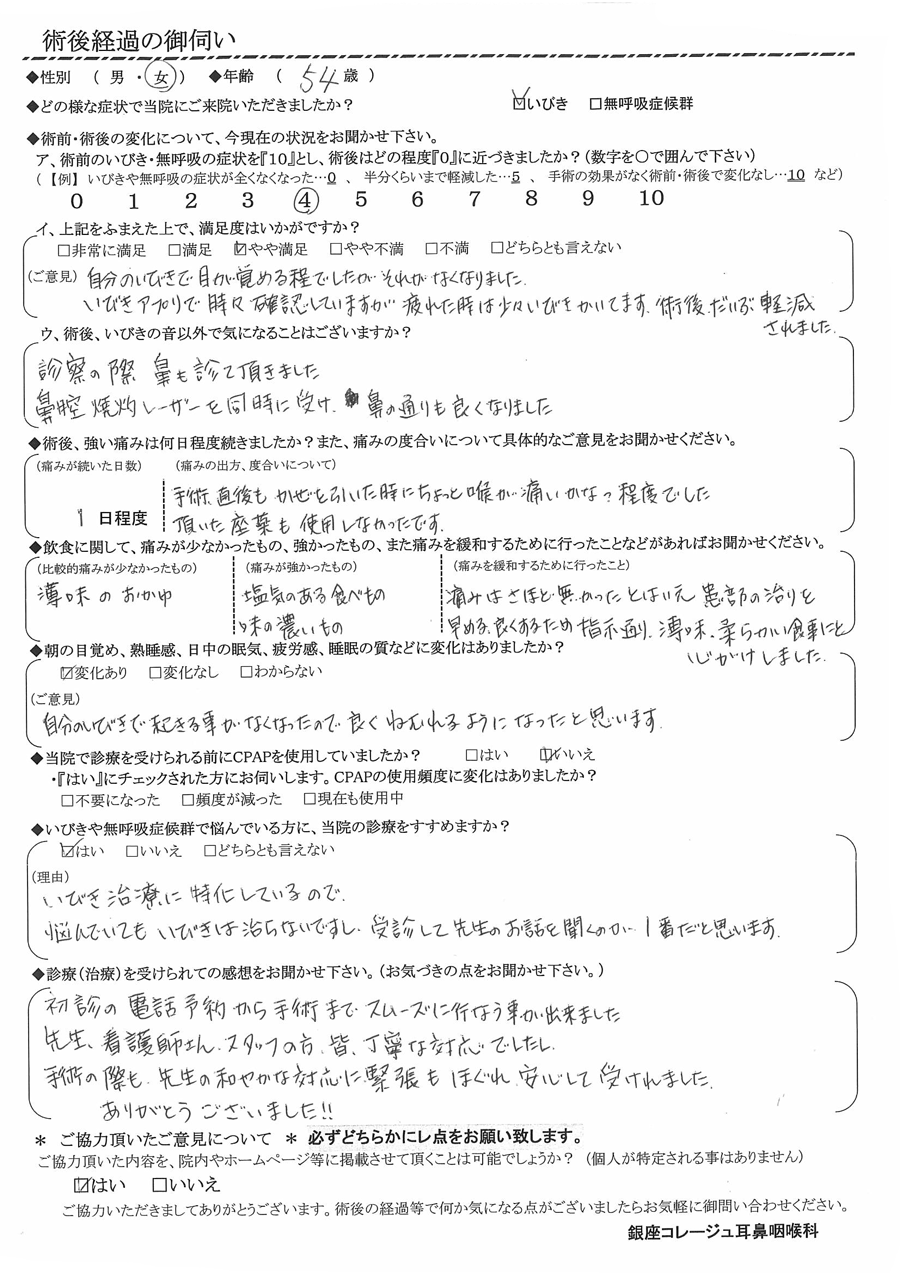 術後経過の御伺い
◆性別 ( 男 ・ 女 ) ◆年齢 ( 54 歳 )
◆どの様な症状で当院にご来院いただきましたか? ☑いびき □無呼吸症候群
◆術前・術後の変化について、今現在の状況をお聞かせ下さい。
ア、術前のいびき・無呼吸の症状を『10』とし、術後はどの程度『0』に近づきましたか?(数字を〇で囲んで下さい)
(【例】 いびきや無呼吸の症状が全くなくなった…0 、 半分くらいまで軽減した…5 、 手術の効果がなく術前・術後で変化なし…10 など)
0 1 2 3 ④ 5 6 7 8 9 10
イ、上記をふまえた上で、満足度はいかがですか?
□非常に満足 □満足 ☑やや満足 □やや不満 □不満 □どちらとも言えない
(ご意見) 自分のいびきで目が覚める程でしたがそれがなくなりました。
いびきアプリで時々確認していますが疲れた時は少々いびきをかいてます。術後、だいぶ軽減
されました。
ウ、術後、いびきの音以外で気になることはございますか?
診察の際 鼻も診て頂きました
鼻腔焼灼レーザーを同時に受け、鼻の通りも良くなりました
◆術後、強い痛みは何日程度続きましたか?また、痛みの度合いについて具体的なご意見をお聞かせください。
(痛みが続いた日数) (痛みの出方、度合いについて)
手術、直後も かぜを引いた時にちょっと喉が痛いかな?程度でした
1 日程度
頂いた座薬も使用しなかったです。
◆飲食に関して、痛みが少なかったもの、強かったもの、また痛みを緩和するために行ったことなどがあればお聞かせください。
(比較的痛みが少なかったもの) (痛みが強かったもの) (痛みを緩和するために行ったこと)
薄味のおかゆ 塩気のある食べもの 痛みはさほど無かったとはいえ患部の治りを
味の濃いもの 早める、良くするため指示通り、薄味、柔らかい食事にと
心がけしました。
◆朝の目覚め、熟睡感、日中の眠気、疲労感、睡眠の質などに変化はありましたか?
☑変化あり □変化なし □わからない
(ご意見)
自分のいびきで起きる事がなくなったので良くねむれるようになったと思います。
◆当院で診療を受けられる前にCPAPを使用していましたか? □はい ☑いいえ
・『はい』にチェックされた方にお伺いします。CPAPの使用頻度に変化はありましたか?
□不要になった □頻度が減った □現在も使用中
◆いびきや無呼吸症候群で悩んでいる方に、当院の診療をすすめますか?
☑はい □いいえ □どちらとも言えない
(理由)
いびき治療に特化しているので、
悩んでいてもいびきは治らないですし、受診して先生のお話を聞くのが1番だと思います。
◆診療(治療)を受けられての感想をお聞かせ下さい。(お気づきの点をお聞かせ下さい。)
初診の電話予約から手術までスムーズに行なう事が出来ました
先生、看護師さん、スタッフの方、皆、丁寧な対応でしたし、
手術の際も、先生の和やかな対応に緊張もほぐれ、安心して受けれました。
ありがとうございました!!
* ご協力頂いたご意見について * 必ずどちらかにレ点をお願い致します。
ご協力頂いた内容を、院内やホームページ等に掲載させて頂くことは可能でしょうか? (個人が特定される事はありません)
☑はい □いいえ
ご協力いただきましてありがとうございます。術後の経過等で何か気になる点がございましたらお気軽に御問い合わせください。
銀座コレージュ耳鼻咽喉科